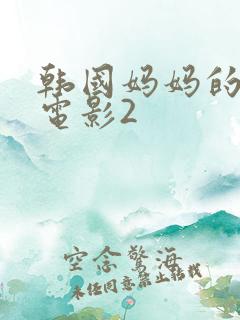 韩国妈妈的
電影2
空念驚海
未经同意禁止转载